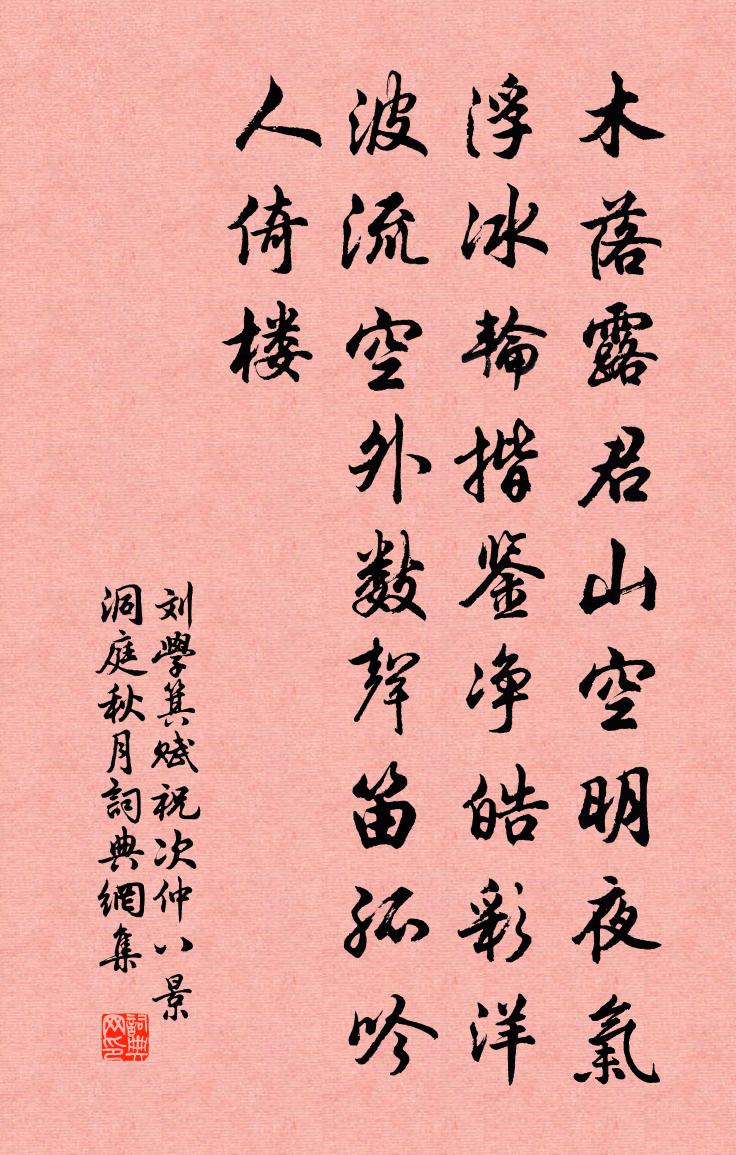 木落露君山空明夜氣
浮冰輪揩鉴净皓彩洋
波流空外数聲笛孤吟
人倚楼
刘學箕赋祝次仲八景
洞庭秋月詞典網集
詞典网印